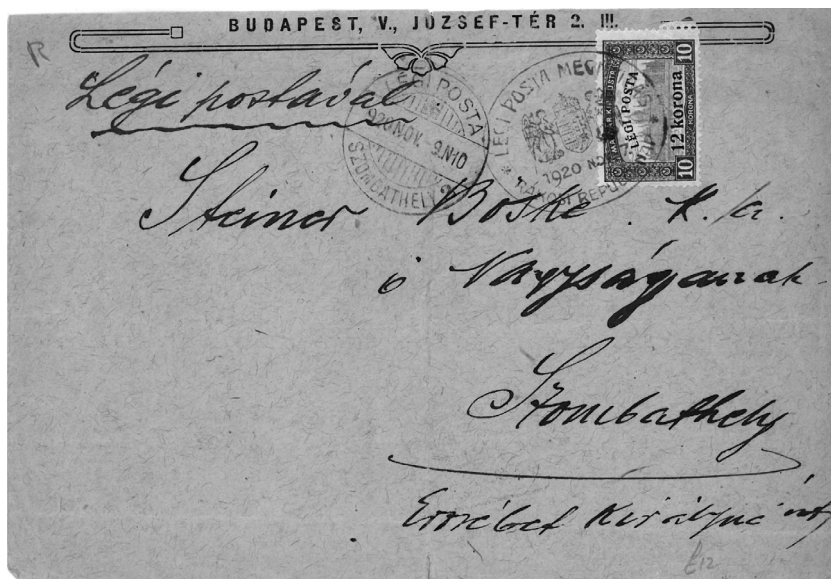 BUDAPEST, V., JÓZSEF-TÉR 2. III.
R
Légi postával
LÉGI POSTA
920 NOV. -9. N10
SZOMBATHELY 2
* LÉGI POSTA MEG
1920 NO
* RÁKOSI REPÜ
10 10
LÉGI POSTA
12 korona
KORONA
Steiner Böske
ő Nagyságának
Szombathely
Erzsébet Királyné út